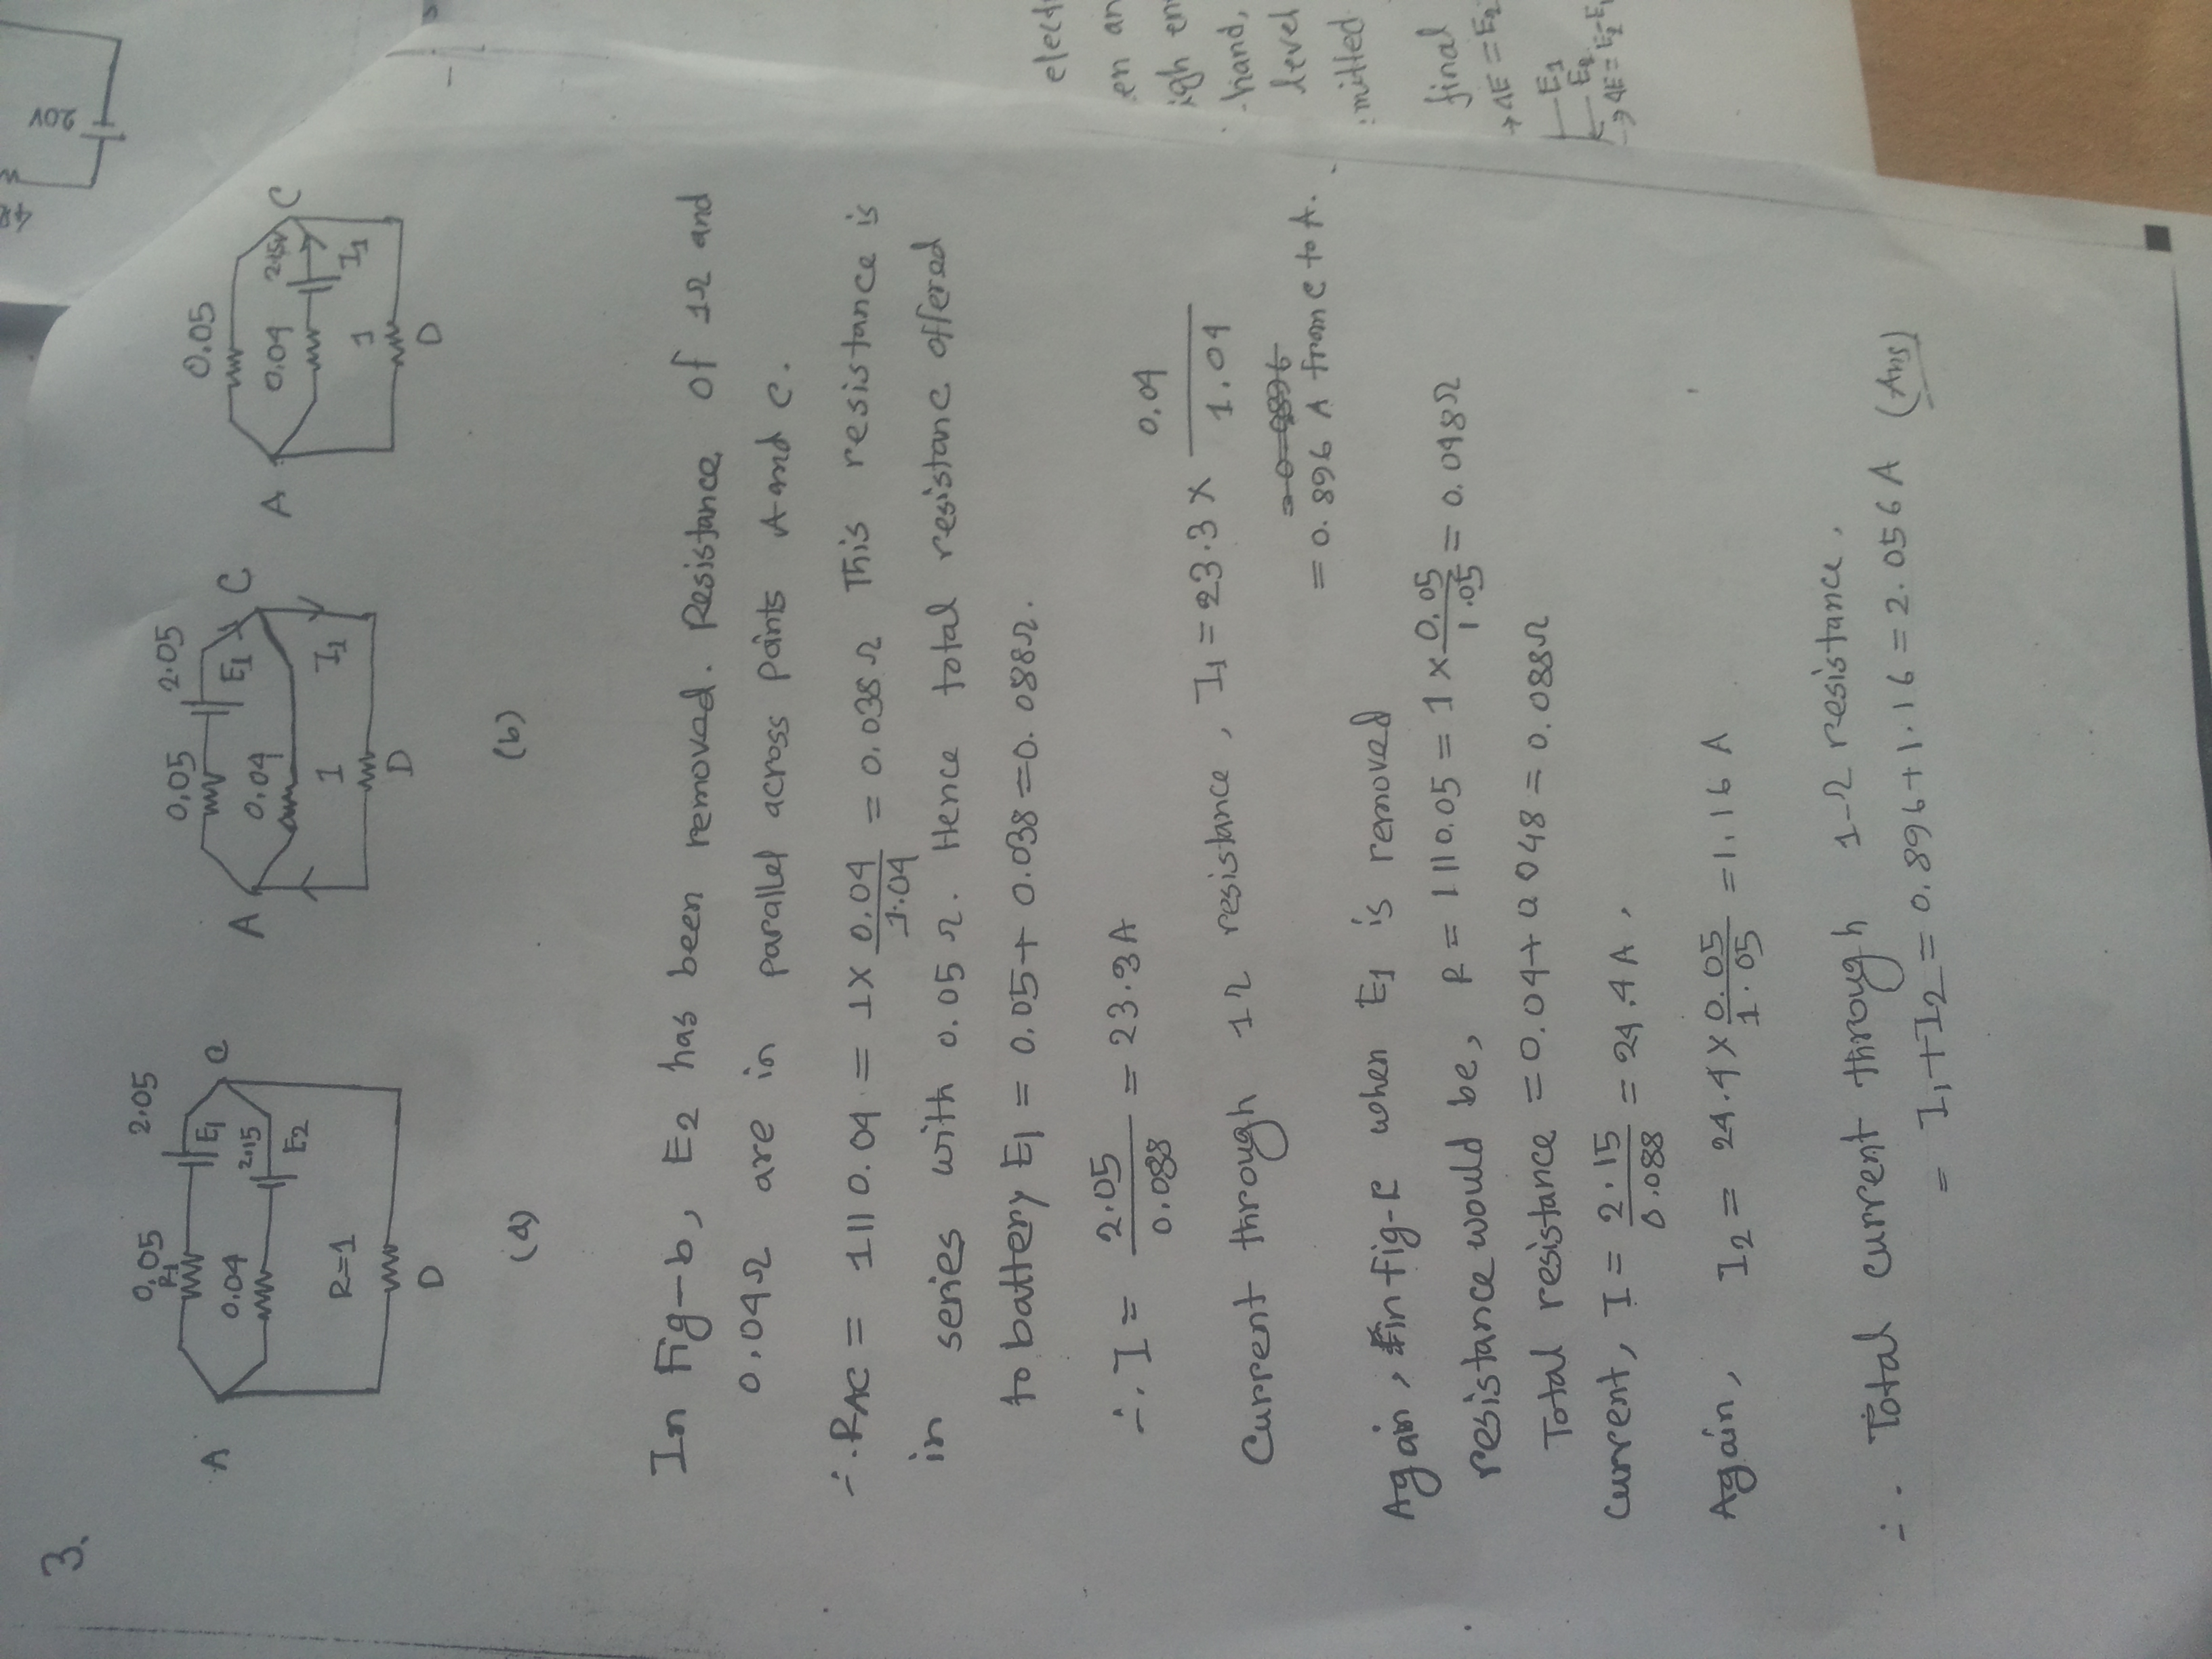 3.
4Ω
20V
0.05
R1
2.05
A
E1
C
0.04
2.15
E2
R=1
D
(a)
0.05
2.05
A
E1
C
0.04
1
I1
D
(b)
0.05
A
0.04
2.15V
C
1
I1
D
In Fig-b, E2 has been removed. Resistance of 1Ω and
0.04Ω are in parallel across points A and C.
∴ RAC = 1 || 0.04 = 1 × 0.04/1.04 = 0.038Ω This resistance is
in series with 0.05 Ω. Hence total resistanc offered
to battery E1 = 0.05 + 0.038 = 0.088Ω.
∴ I = 2.05/0.088 = 23.3A
Current through 1Ω resistance, I1 = 23.3 × 0.04/1.04
= 0.896 A from C to A.
Again, in fig-c when E1 is removed
resistance would be, R = 1 || 0.05 = 1 × 0.05/1.05 = 0.048Ω
Total resistance = 0.04 + 0.048 = 0.088Ω
Current, I = 2.15/0.088 = 24.4 A.
Again, I2 = 24.4 × 0.05/1.05 = 1.16 A
∴ Total current through 1-Ω resistance,
= I1 + I2 = 0.896 + 1.16 = 2.056 A (Ans)
elect
en an
igh en
hand,
level
mitted
final
→ ΔE = E2
E1
E2
→ ΔE = E2-E1